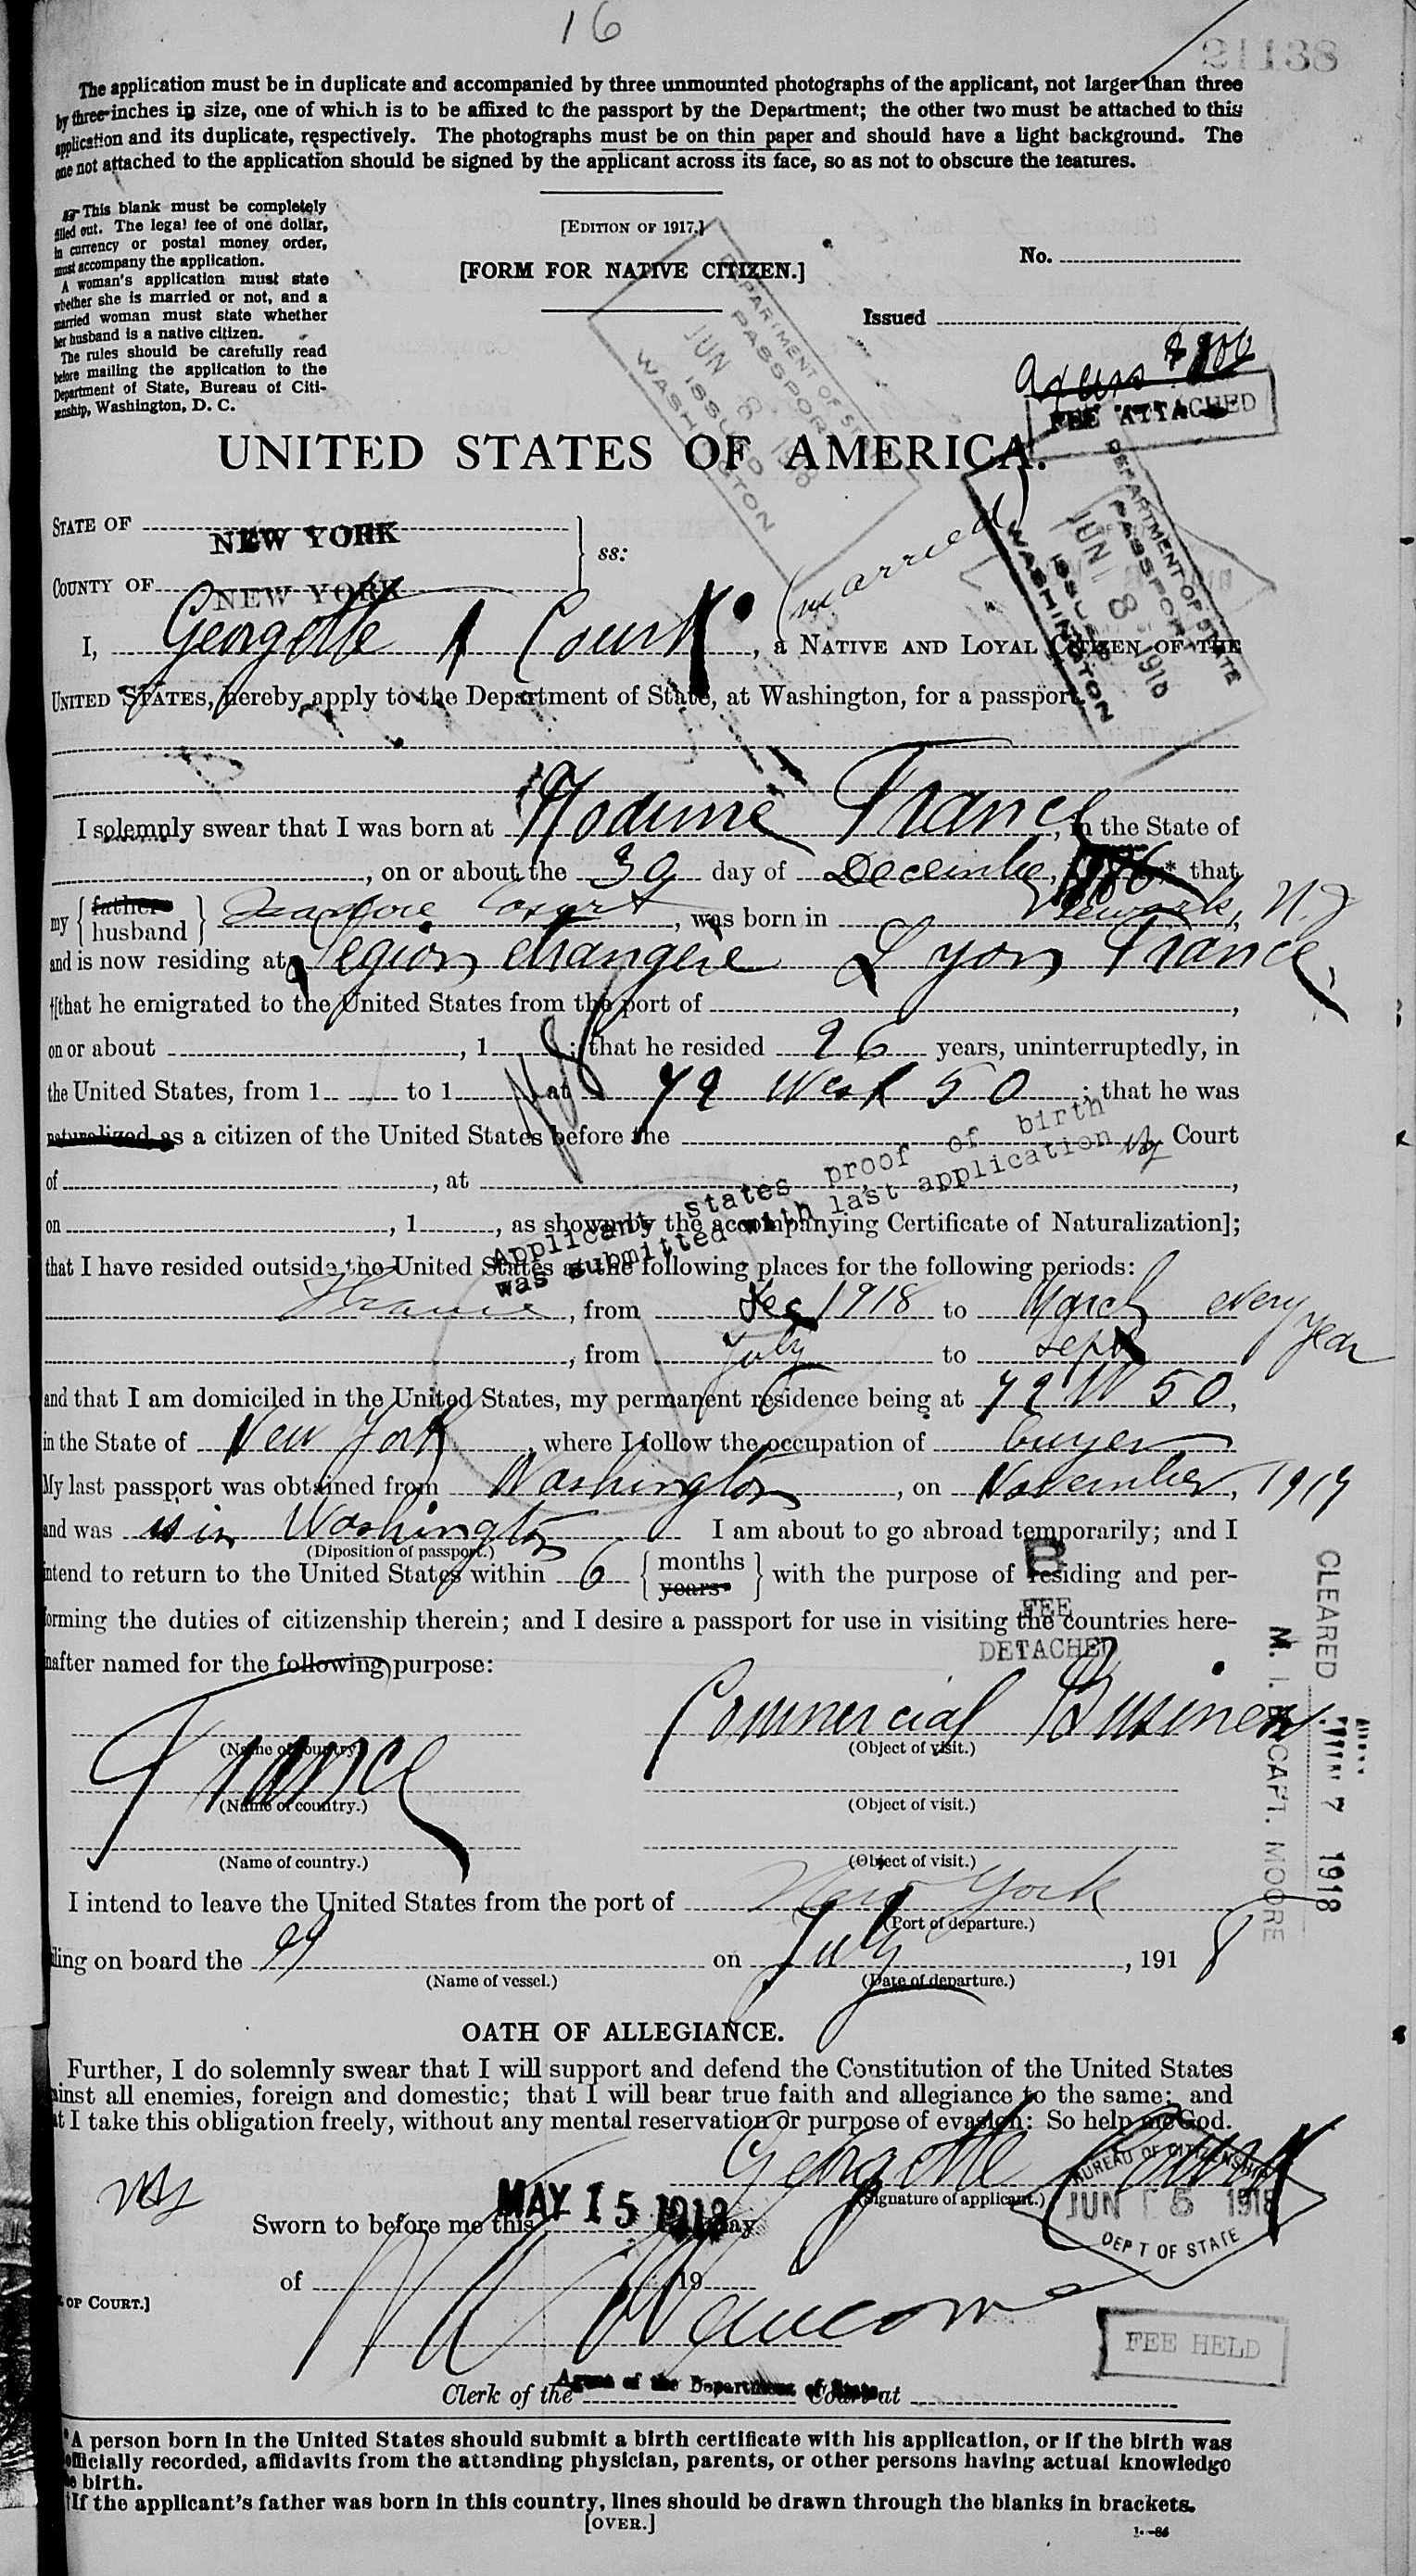 16
21138
The application must be in duplicate and accompanied by three unmounted photographs of the applicant, not larger than three
by three inches in size, one of which is to be affixed to the passport by the Department; the other two must be attached to this
application and its duplicate, respectively. The photographs must be on thin paper and should have a light background. The
one not attached to the application should be signed by the applicant across its face, so as not to obscure the features.
This blank must be completely
filled out. The legal fee of one dollar,
in currency or postal money order,
must accompany the application.
A woman's application must state
whether she is married or not, and a
married woman must state whether
her husband is a native citizen.
The rules should be carefully read
before mailing the application to the
Department of State, Bureau of Citi-
zenship, Washington, D. C.
[EDITION OF 1917.]
[FORM FOR NATIVE CITIZEN.]
No.
Issued
FEE ATTACHED
DEPARTMENT OF STATE
PASSPORT
JUN 8 1918
ISSUED
WASHINGTON
UNITED STATES OF AMERICA.
DEPARTMENT OF STATE
PASSPORT
JUN 8 1918
ISSUED
WASHINGTON
STATE OF NEW YORK
COUNTY OF NEW YORK
ss:
(married)
I, Georgette Court, a NATIVE AND LOYAL CITIZEN OF THE
UNITED STATES, hereby apply to the Department of State, at Washington, for a passport
I solemnly swear that I was born at France, in the State of
, on or about the 30 day of December, * that
my { father husband } Court, was born in Newark, N.J
and is now residing at Legion etrangere Lyon France,
†[that he emigrated to the United States from the port of ,
on or about , 1 ; that he resided 26 years, uninterruptedly, in
the United States, from 1 to 1 , at 72 West 50 ; that he was
naturalized as a citizen of the United States before the Court
of , at ,
on , 1 , as shown by the accompanying Certificate of Naturalization];
Applicant states proof of birth
was submitted with last application
that I have resided outside the United States at the following places for the following periods:
France, from Dec 1918 to March every
year
, from July to Sept
and that I am domiciled in the United States, my permanent residence being at 72 W 50,
in the State of New York, where I follow the occupation of buyer
My last passport was obtained from Washington, on November, 1917
and was is in Washington I am about to go abroad temporarily; and I
(Diposition of passport.)
intend to return to the United States within 6 { months years } with the purpose of residing and per-
forming the duties of citizenship therein; and I desire a passport for use in visiting the countries here-
FEE
DETACHED
inafter named for the following purpose:
France
Commercial Business
(Name of country.)
(Object of visit.)
(Name of country.)
(Object of visit.)
(Name of country.)
(Object of visit.)
CLEARED
7 1918
M. I. CAPT. MOORE
I intend to leave the United States from the port of New York
(Port of departure.)
ling on board the on July, 1918
(Name of vessel.)
(Date of departure.)
OATH OF ALLEGIANCE.
Further, I do solemnly swear that I will support and defend the Constitution of the United States
ainst all enemies, foreign and domestic; that I will bear true faith and allegiance to the same; and
at I take this obligation freely, without any mental reservation or purpose of evasion: So help me God.
Georgette Court
(Signature of applicant.)
BUREAU OF CITIZENSHIP
JUN 5 1918
DEP'T OF STATE
Sworn to before me this MAY 15 1918 day
of 19
OF COURT.]
FEE HELD
Agent of the Department of State
Clerk of the Court at
*A person born in the United States should submit a birth certificate with his application, or if the birth was
officially recorded, affidavits from the attending physician, parents, or other persons having actual knowledge
e birth.
†If the applicant's father was born in this country, lines should be drawn through the blanks in brackets.
[OVER.]